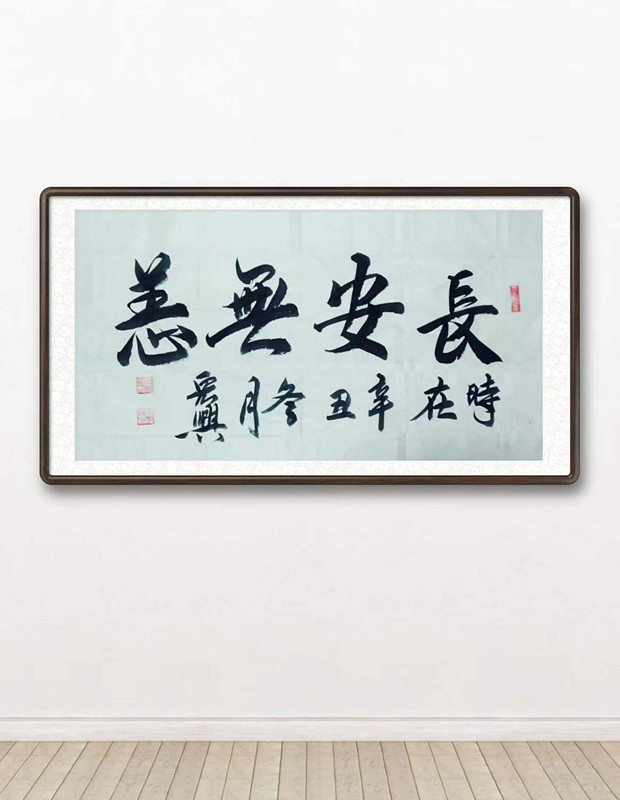 長安無恙
時在辛丑冬月興